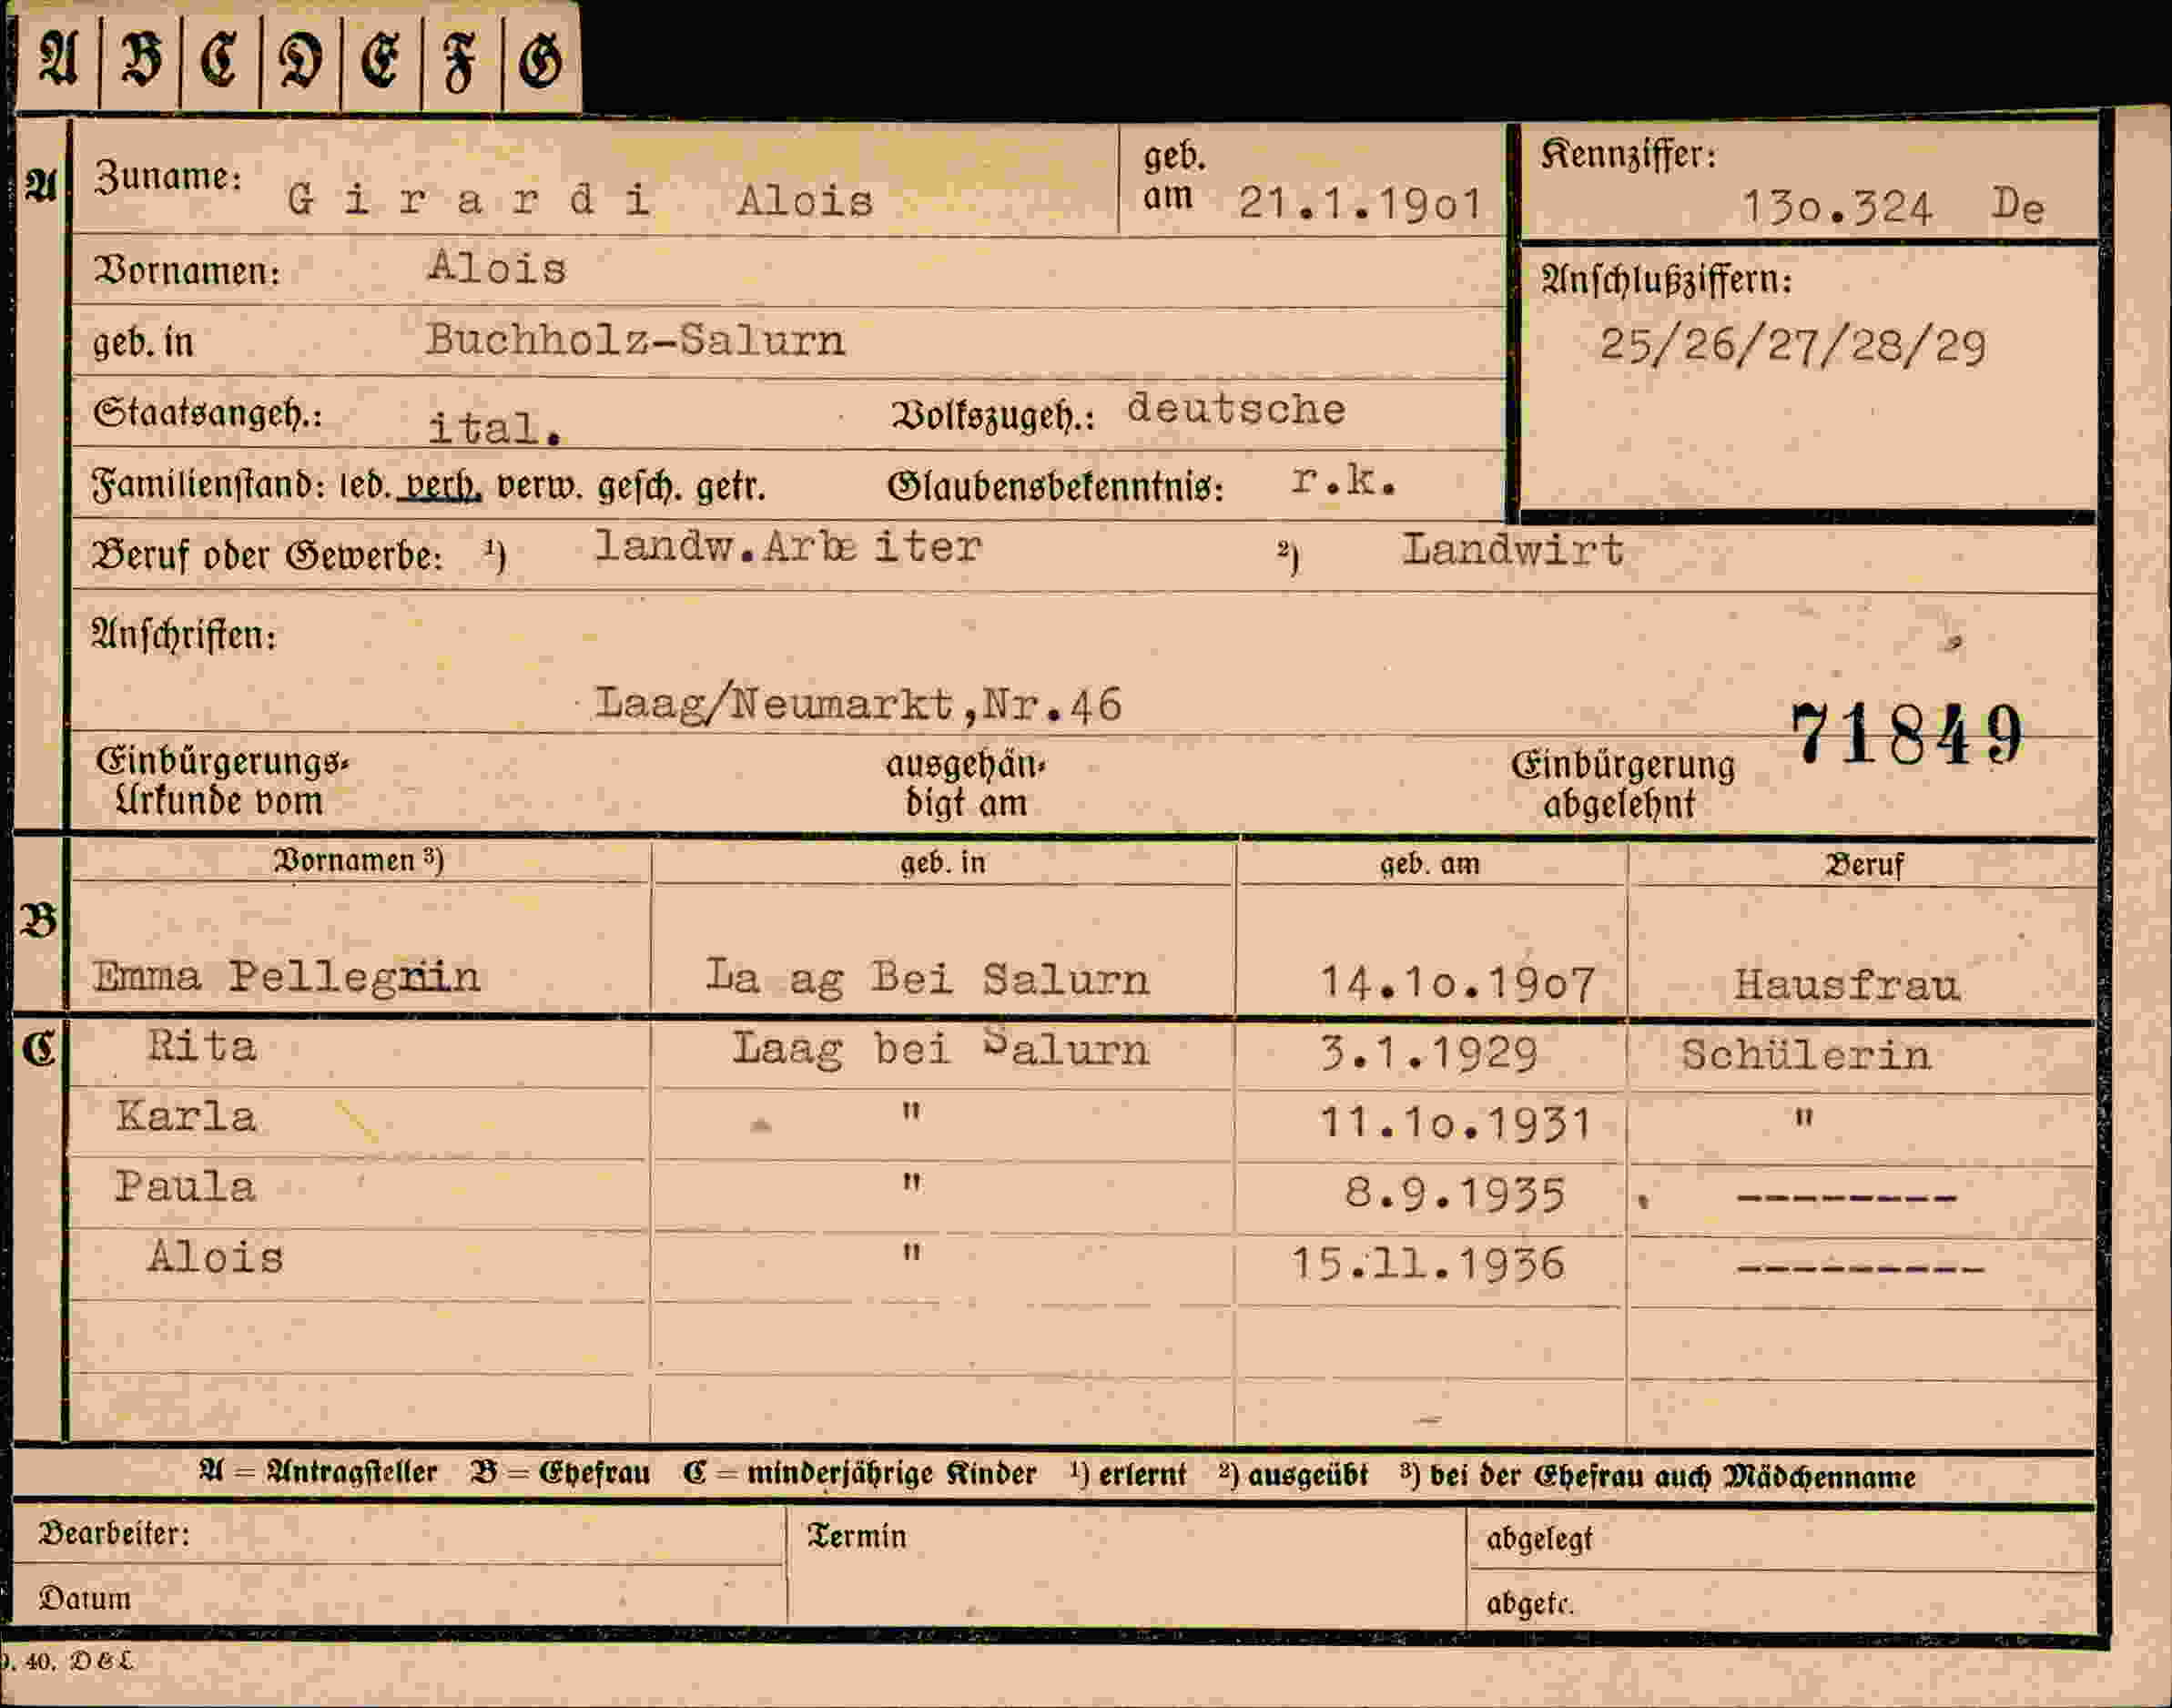 A B C D E F G
A Zuname: Girardi Alois geb. am 21.1.19o1 Kennziffer: 13o.324 De
Vornamen: Alois
Anschlußziffern:
geb. in Buchholz-Salurn 25/26/27/28/29
Staatsangeh.: ital. Volkszugeh.: deutsche
Familienstand: led. verh. verw. gesch. getr. Glaubensbekenntnis: r.k.
Beruf oder Gewerbe: ¹) landw.Arbeiter ²) Landwirt
Anschriften:
Laag/Neumarkt,Nr.46
71849
Einbürgerungs- ausgehän- Einbürgerung
Urkunde vom digt am abgelehnt
Vornamen ³) geb. in geb. am Beruf
B
Emma Pellegrin La ag Bei Salurn 14.1o.19o7 Hausfrau
C Rita Laag bei Salurn 3.1.1929 Schülerin
Karla " 11.1o.1931 "
Paula " 8.9.1935 --------
Alois " 15.11.1936 ---------
A = Antragsteller B = Ehefrau C = minderjährige Kinder ¹) erlernt ²) ausgeübt ³) bei der Ehefrau auch Mädchenname
Bearbeiter: Termin abgelegt
Datum abgetr.
40. D & L